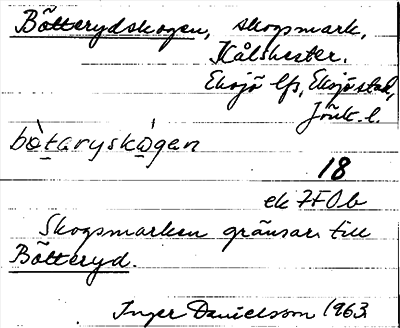 Bötterydskogen, skogsmark,
Kålshester.
Eksjö lfs, Eksjö stad,
Jönk. l.
bò̱taryskò̱gen
18
ek 7F0b
Skogsmarken gränsar till
Bötteryd.
Inger Danielsson 1963